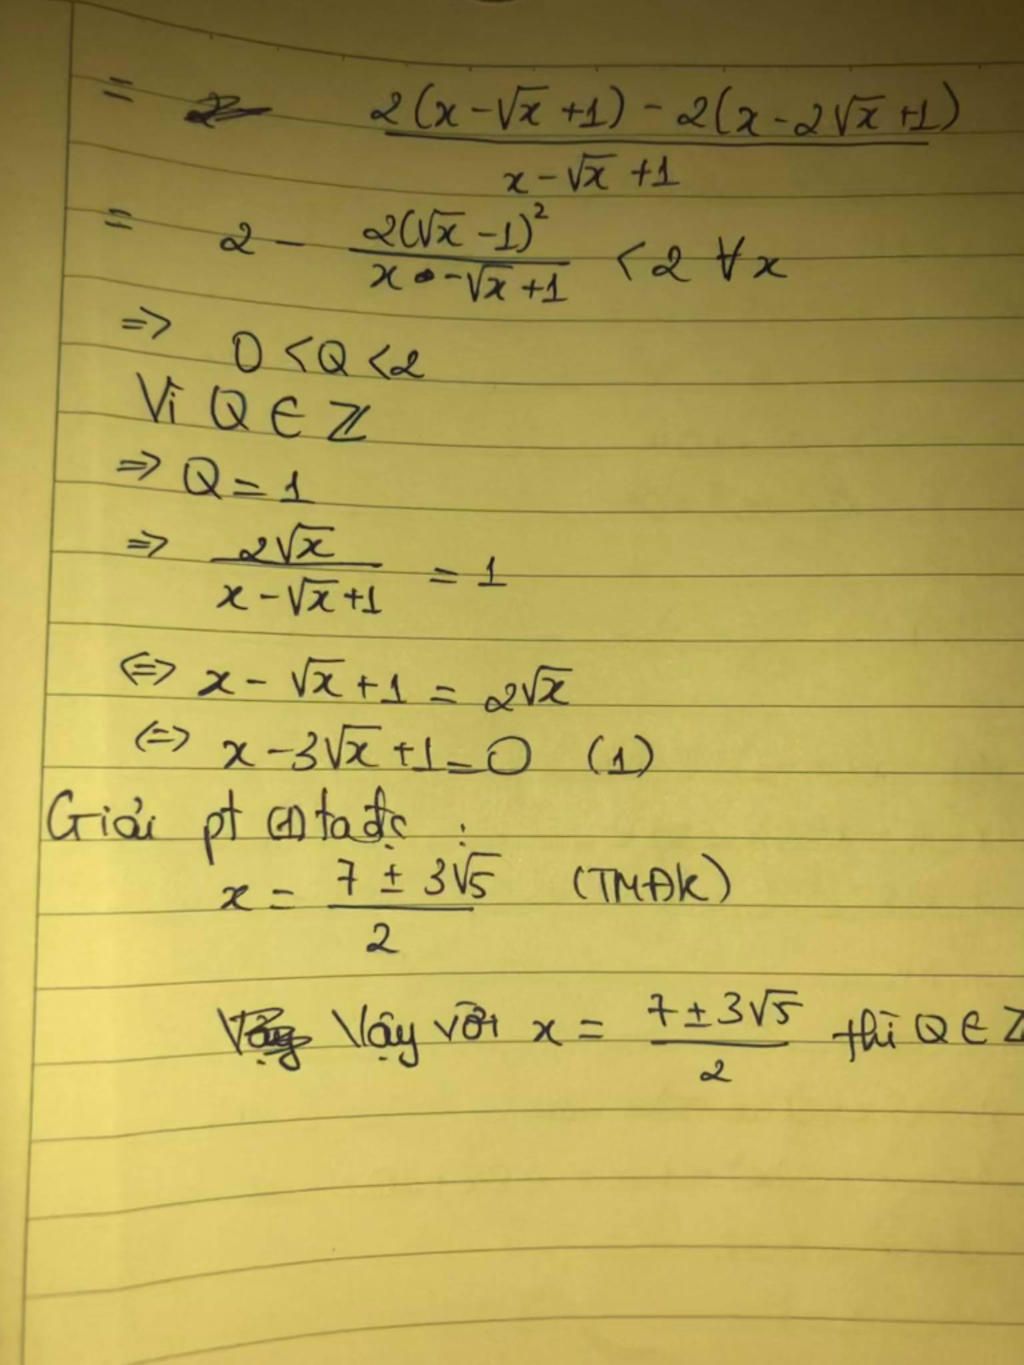 = 2(x - √x + 1) - 2(x - 2√x + 1) / x - √x + 1
= 2 - 2(√x - 1)² / x - √x + 1 < 2 ∀x
=> 0 < Q < 2
Vì Q ∈ ℤ
=> Q = 1
=> 2√x / x - √x + 1 = 1
<=> x - √x + 1 = 2√x
<=> x - 3√x + 1 = 0 (1)
Giải pt (1) ta đc :
x = 7 ± 3√5 / 2 (TMĐK)
Vậy với x = 7 ± 3√5 / 2 thì Q ∈ ℤ